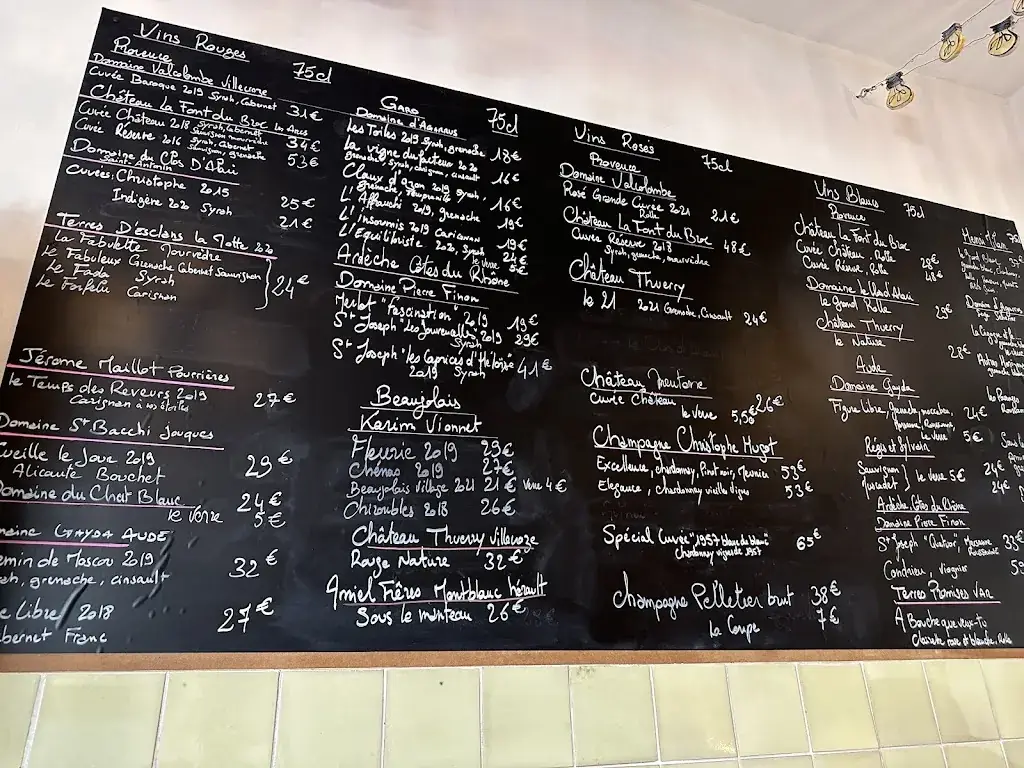 Vins Rouges 75cl
Provence
Domaine Valcolombe Villecroze
Cuvée Baroque 2019 Syrah, Cabernet 31€
Château La Font du Broc Les Arcs
Cuvée Château 2018 Syrah, Cabernet 34€
Sauvignon mourvèdre
Cuvée Réserve 2016 Syrah, Cabernet 53€
Sauvignon, grenache
Domaine du Clos D'Alari
Saint Antonin
Cuvées: Christophe 2015 25€
Indigère 2020 Syrah 21€
Terres D'Esclans La Motte 2020
La Fabulette Mourvèdre
Le Fabuleux Grenache Cabernet Sauvignon
Le Fada Syrah 24€
Le Forfelu Carignan
Jérome Maillot Pourrières
Le Temps des Reveurs 2019 27€
Carignan
Domaine St Bacchi Jouques
Cueille le Jour 2019 29€
Alicante Bouchet
Domaine du Chat Blanc 24€
le verre 5€
maine GAYDA AUDE
emin de Moscou 2019 32€
ah, grenache, cinsault
e Libre 2018 27€
abernet Franc
Gard 75cl
Domaine d'Aigaraus
Les Toiles 2019 Syrah, grenache 18€
La vigne du facteur 2020 16€
Grenache, Syrah, carignan, cinsault
Claux d'Ozon 2019 Syrah, 16€
Grenache Tempranillo
L'Affranchi 2019, grenache 19€
L'insoumis 2019 Carignan 19€
L'Equilibriste 2020, Syrah 24€
le verre 5€
Ardèche Côtes du Rhône
Domaine Pierre Finon
Merlot "Fascination" 2019 19€
St Joseph "Les Jouvencelles" 2019 29€
Syrah
St Joseph "les Caprices d'Héloïse" 41€
2019 Syrah
Beaujolais
Karim Vionnet
Fleurie 2019 29€
Chénas 2019 27€
Beaujolais Village 2021 21€ Verre 4€
Chiroubles 2018 26€
Château Thuerry Villecroze
Rouge Nature 32€
Amiel Frères Montblanc hérault
Sous le manteau 26€
Vins Rosés 75cl
Provence
Domaine Valcolombe
Rosé Grande Cuvée 2021 21€
Rolle
Château La Font du Broc
Cuvée Réserve 2018 48€
Syrah, grenache, mourvèdre
Château Thuerry
Le 21 2021 Grenache, Cinsault 24€
Château Mentone
Cuvée Château 26€
le verre 5,50€
Champagne Christophe Hugot
Excellence, chardonnay, Pinot noir, Meunier 53€
Elegance, Chardonnay vieille vigne 53€
Spécial Cuvée "1957" blanc de blanc 65€
Chardonnay vigne de 1957
Champagne Pelletier brut 38€
La Coupe 7€
Vins Blancs 75cl
Provence
Château La Font du Broc
Cuvée Château, Rolle 28€
Cuvée Réserve, Rolle 48€
Domaine
Le Grand Rolle 29€
Château Thuerry
Le Nature 28€
Aude
Domaine Gayda
Figure Libre, Grenache, maccabeu, 24€
Marsanne, Roussanne
le verre 5€
Régis et Sylvain
Sauvignon 24€
le verre 5€
24€
Ardèche, Côtes du Rhône
Domaine Pierre Finon
St Joseph Marsanne 33€
Roussanne
Condrieu, viognier
Terres Promises Var
A Bouche que veux-Tu
Clairette rose et blanche, Rolle